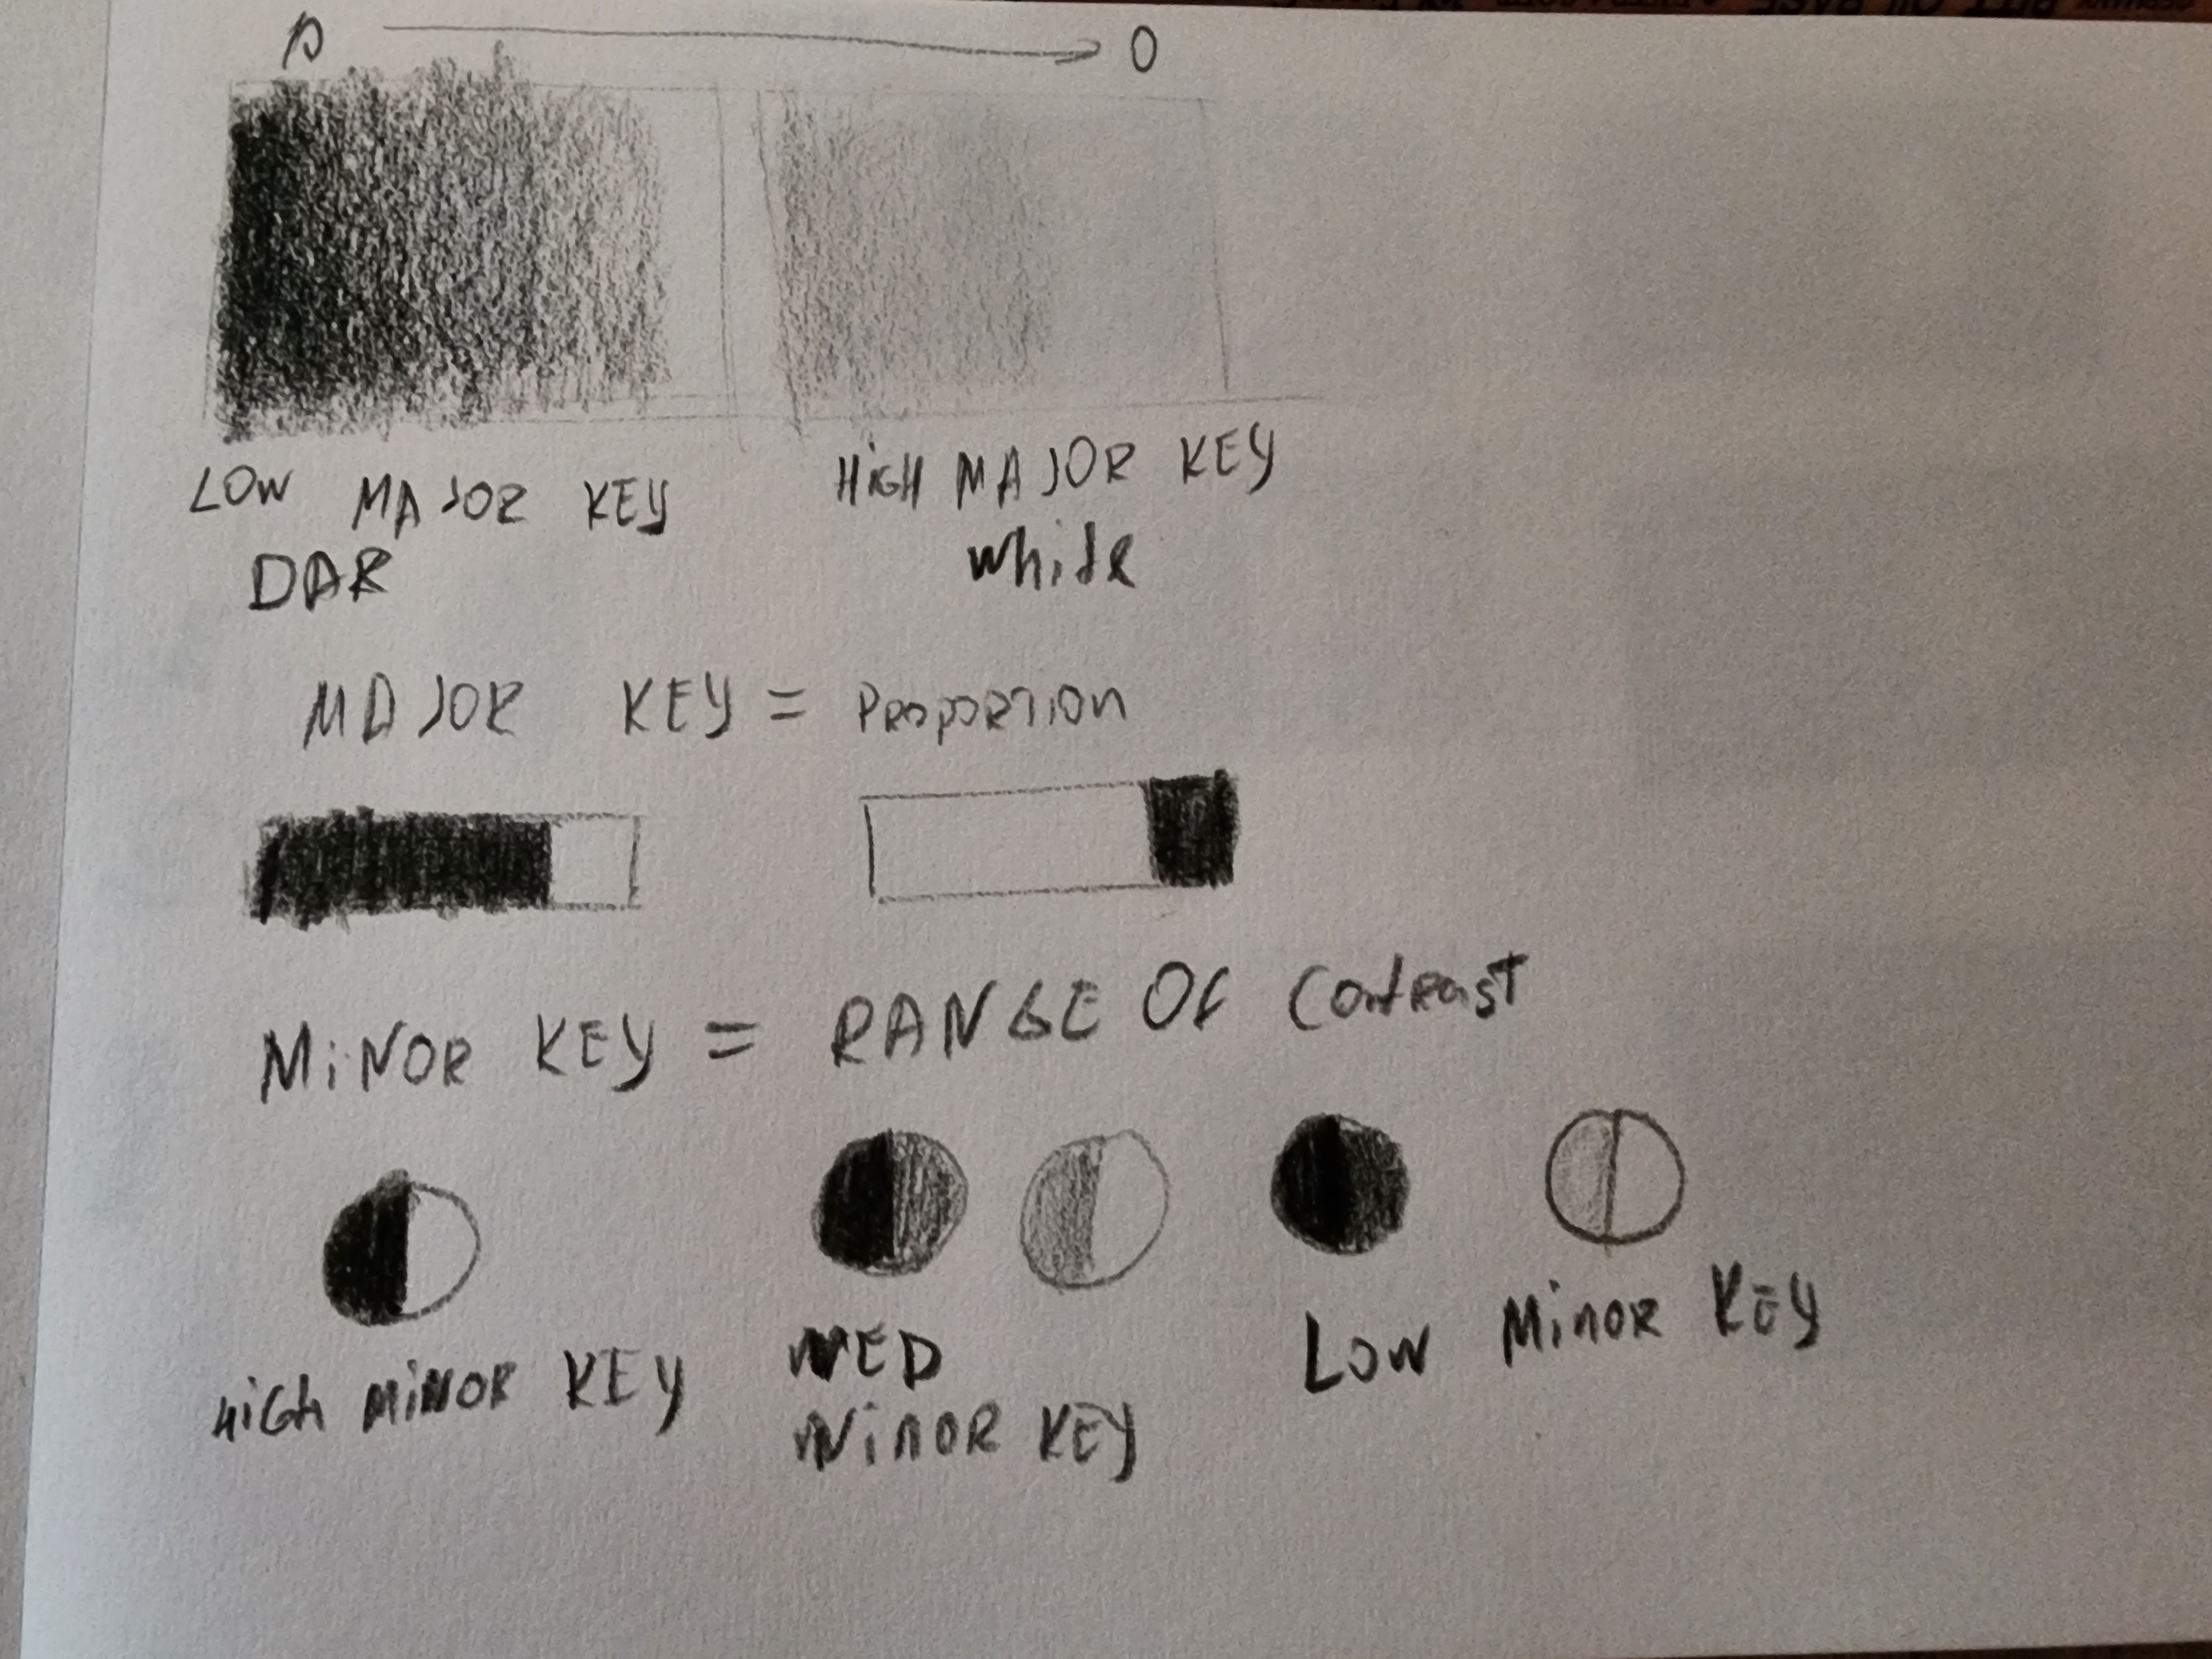 0
LOW MAJOR KEY
HiGH MAJOR KEY
DAR
white
MAJOR KEY = PROPORTION
MiNOR KEY = RANGE OF Contrast
HiGh MiNOR KEY
MED
MiNOR KEY
LOW MiNOR KEY